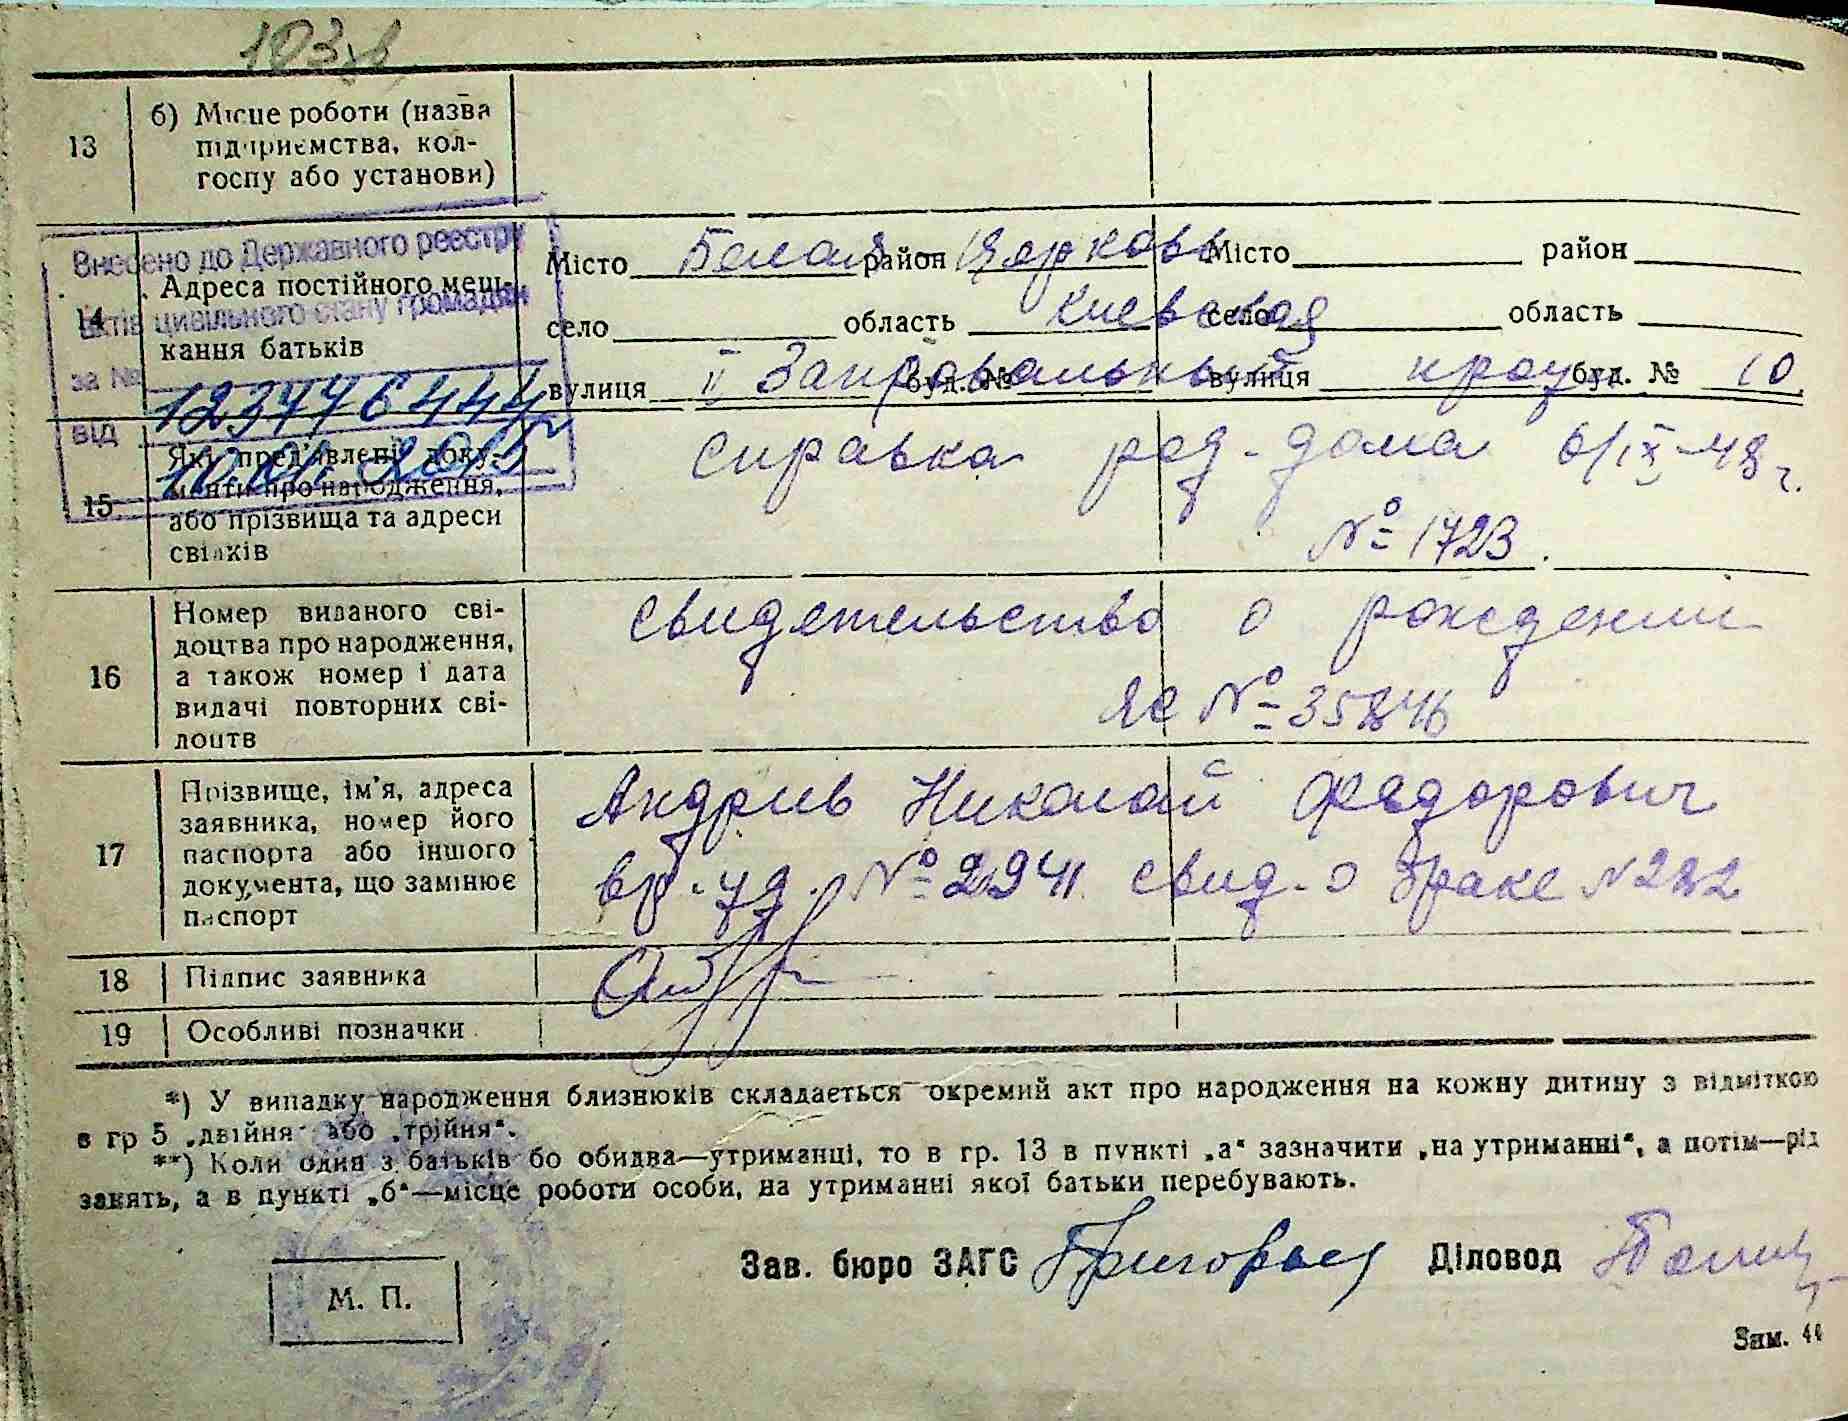 103
13 б) Місце роботи (назва
підприємства, кол-
госпу або установи)
Внесено до Державного реєстру
актів цивільного стану громадян
за № 123776444
від 2015
14 Адреса постійного меш-
кання батьків
Місто Белая район Церковь Місто район
село область Киевская село область
вулиця II Замковальный буд. № вулиця буд. № 10
15 Які пред'явлені доку-
менти про народження,
або прізвища та адреси
свідків
справка род-дома 6/IX-48 г.
№ 1723.
16 Номер виданого сві-
доцтва про народження,
а також номер і дата
видачі повторних сві-
доцтв
свидетельство о рождении
№ 35846
17 Прізвище, ім'я, адреса
заявника, номер його
паспорта або іншого
документа, що замінює
паспорт
Андрив Николай Федорович
вр. уд. № 2941 свид-о браке № 222
18 Підпис заявника
19 Особливі позначки
*) У випадку народження близнюків складається окремий акт про народження на кожну дитину з відміткою
в гр 5 „двійня" або „трійня".
**) Коли один з батьків бо обидва—утриманці, то в гр. 13 в пункті „а" зазначити „на утриманні", а потім—рід
занять, а в пункті „б"—місце роботи особи, на утриманні якої батьки перебувають.
Зав. бюро ЗАГС Діловод
М. П.
Зам. 44